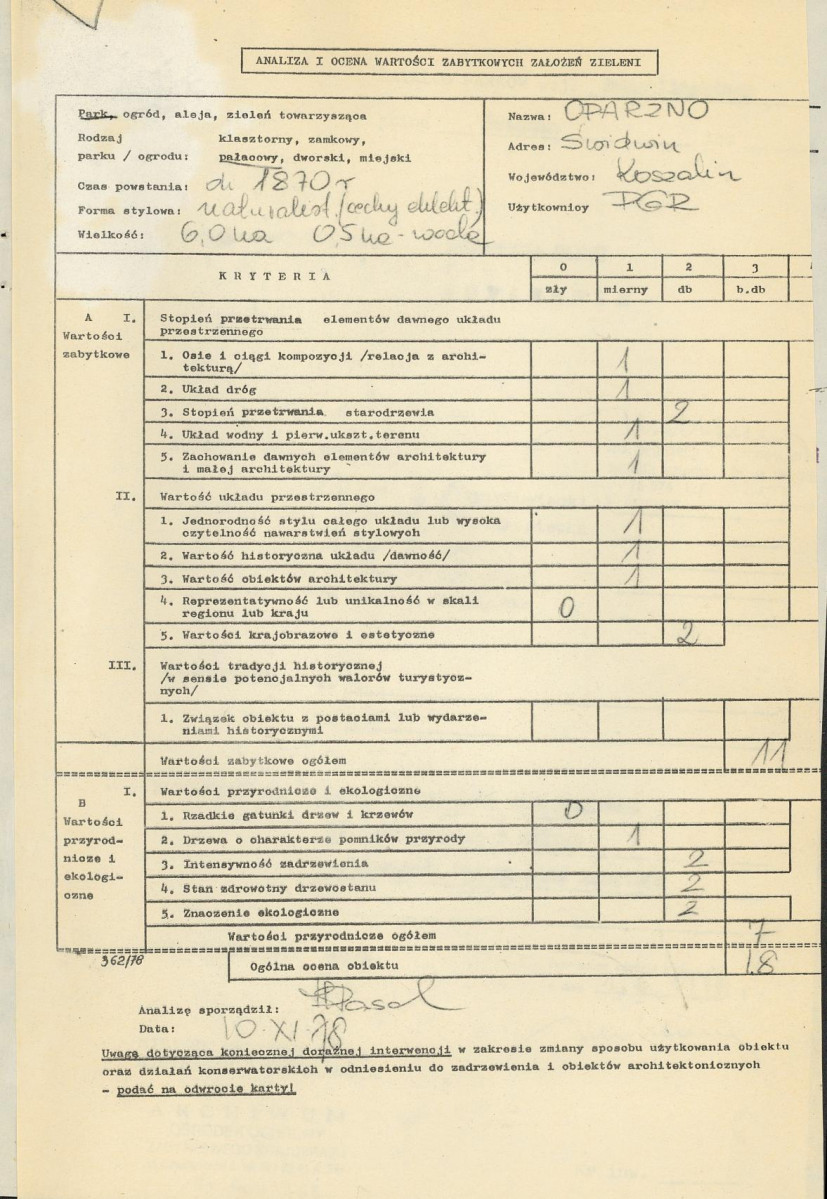 ANALIZA I OCENA WARTOŚCI ZABYTKOWYCH ZAŁOŻEŃ ZIELENI
Park, ogród, aleja, zieleń towarzysząca
Rodzaj klasztorny, zamkowy,
parku / ogrodu: pałacowy, dworski, miejski
Czas powstania: ok 1870 r
Forma stylowa: naturalist. (cechy eklekt.)
Wielkość: 6,0 ha 0,5 ha - woda
Nazwa: OPARZNO
Adres: Świdwin
Województwo: Koszalin
Użytkownicy PGR
KRYTERIA 0 1 2 3
zły mierny db b.db
A I. Stopień przetrwania elementów dawnego układu
Wartości przestrzennego
zabytkowe 1. Osie i ciągi kompozycji /relacja z archi- 1
tekturą/
2. Układ dróg 1
3. Stopień przetrwania starodrzewia 2
4. Układ wodny i pierw.ukszt.terenu 1
5. Zachowanie dawnych elementów architektury 1
i małej architektury
II. Wartość układu przestrzennego
1. Jednorodność stylu całego układu lub wysoka 1
czytelność nawarstwień stylowych
2. Wartość historyczna układu /dawność/ 1
3. Wartość obiektów architektury 1
4. Reprezentatywność lub unikalność w skali 0
regionu lub kraju
5. Wartości krajobrazowe i estetyczne 2
III. Wartości tradycji historycznej
/w sensie potencjalnych walorów turystycz-
nych/
1. Związek obiektu z postaciami lub wydarze-
niami historycznymi
Wartości zabytkowe ogółem 11
I. Wartości przyrodnicze i ekologiczne
B 1. Rzadkie gatunki drzew i krzewów 0
Wartości
przyrod- 2. Drzewa o charakterze pomników przyrody 1
nicze i 3. Intensywność zadrzewienia 2
ekologi- 4. Stan zdrowotny drzewostanu 2
czne
5. Znaczenie ekologiczne 2
Wartości przyrodnicze ogółem 7
362/78 Ogólna ocena obiektu 18
Analizę sporządził:
Data: 10.XI.78
Uwagę dotycząca koniecznej doraźnej interwencji w zakresie zmiany sposobu użytkowania obiektu
oraz działań konserwatorskich w odniesieniu do zadrzewienia i obiektów architektonicznych
- podać na odwrocie karty!